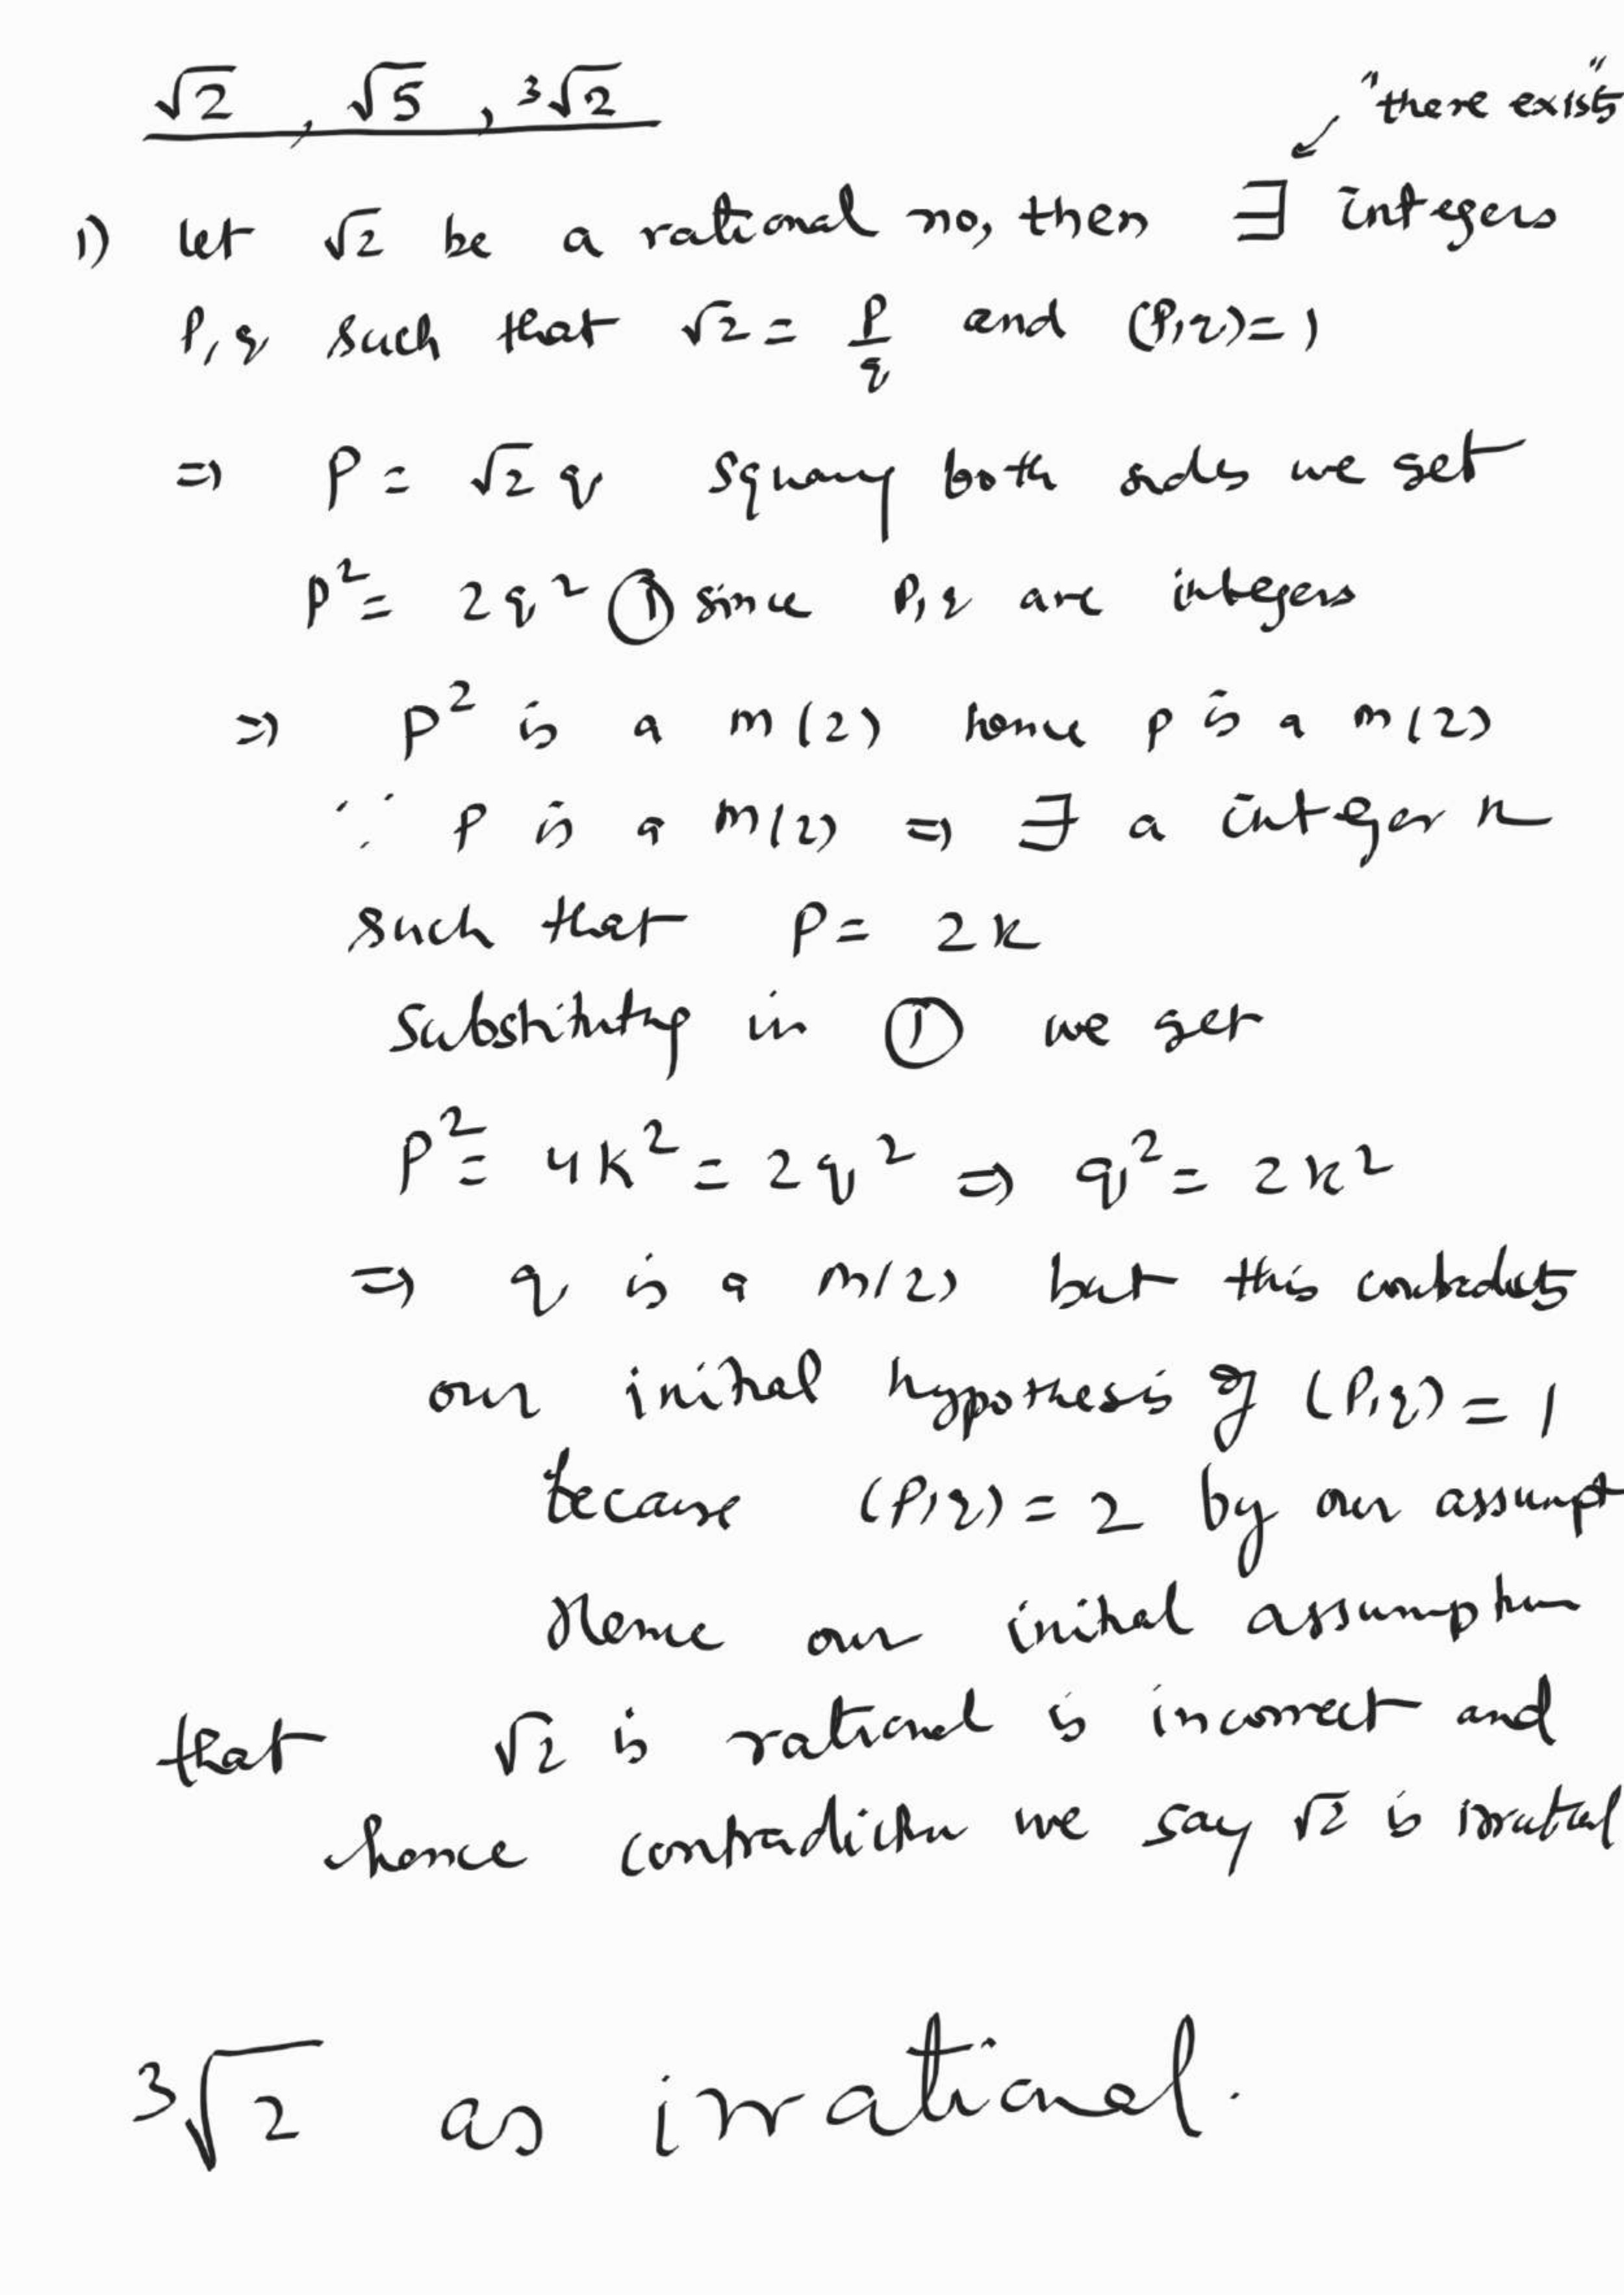 √2 , √5 , ³√2
"there exists"
1) let √2 be a rational no, then ∃ integers
P, q such that √2 = P/q and (P,q)=1
⇒ P = √2 q squaring both sides we get
P² = 2q² ① since P,q are integers
⇒ P² is a m(2) hence p is a m(2)
∵ P is a m(2) ⇒ ∃ a integer k
such that P = 2k
Substituting in ① we get
P² = 4k² = 2q² ⇒ q² = 2k²
⇒ q is a m(2) but this contradicts
our initial hypothesis of (P,q) = 1
because (P,q) = 2 by our assumpt
Hence our initial assumption
that √2 is rational is incorrect and
hence contradiction we say √2 is irrational
³√2 as irrational.